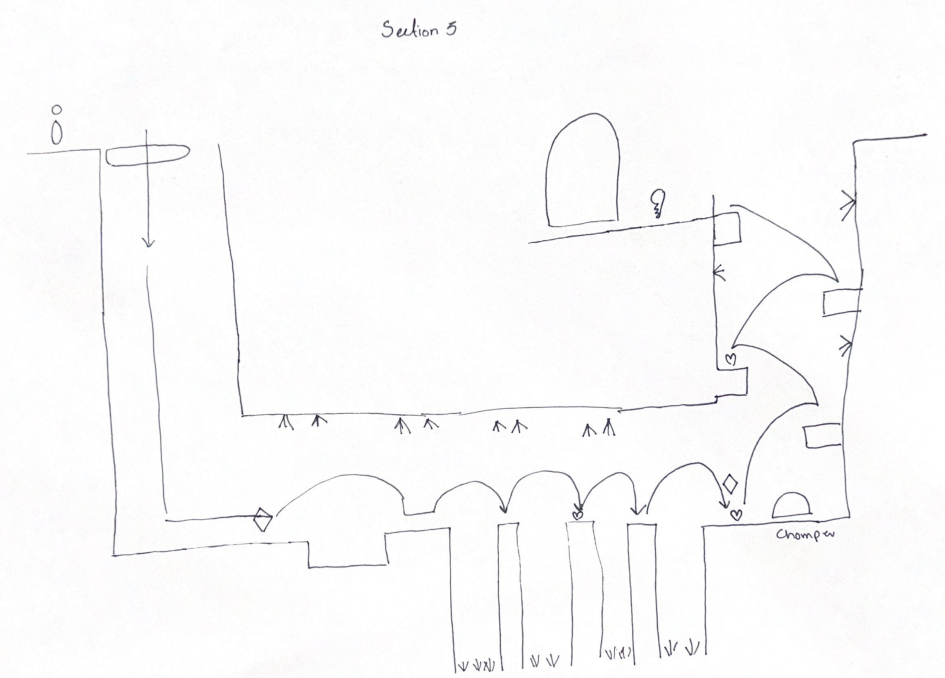 Section 5
Chomper